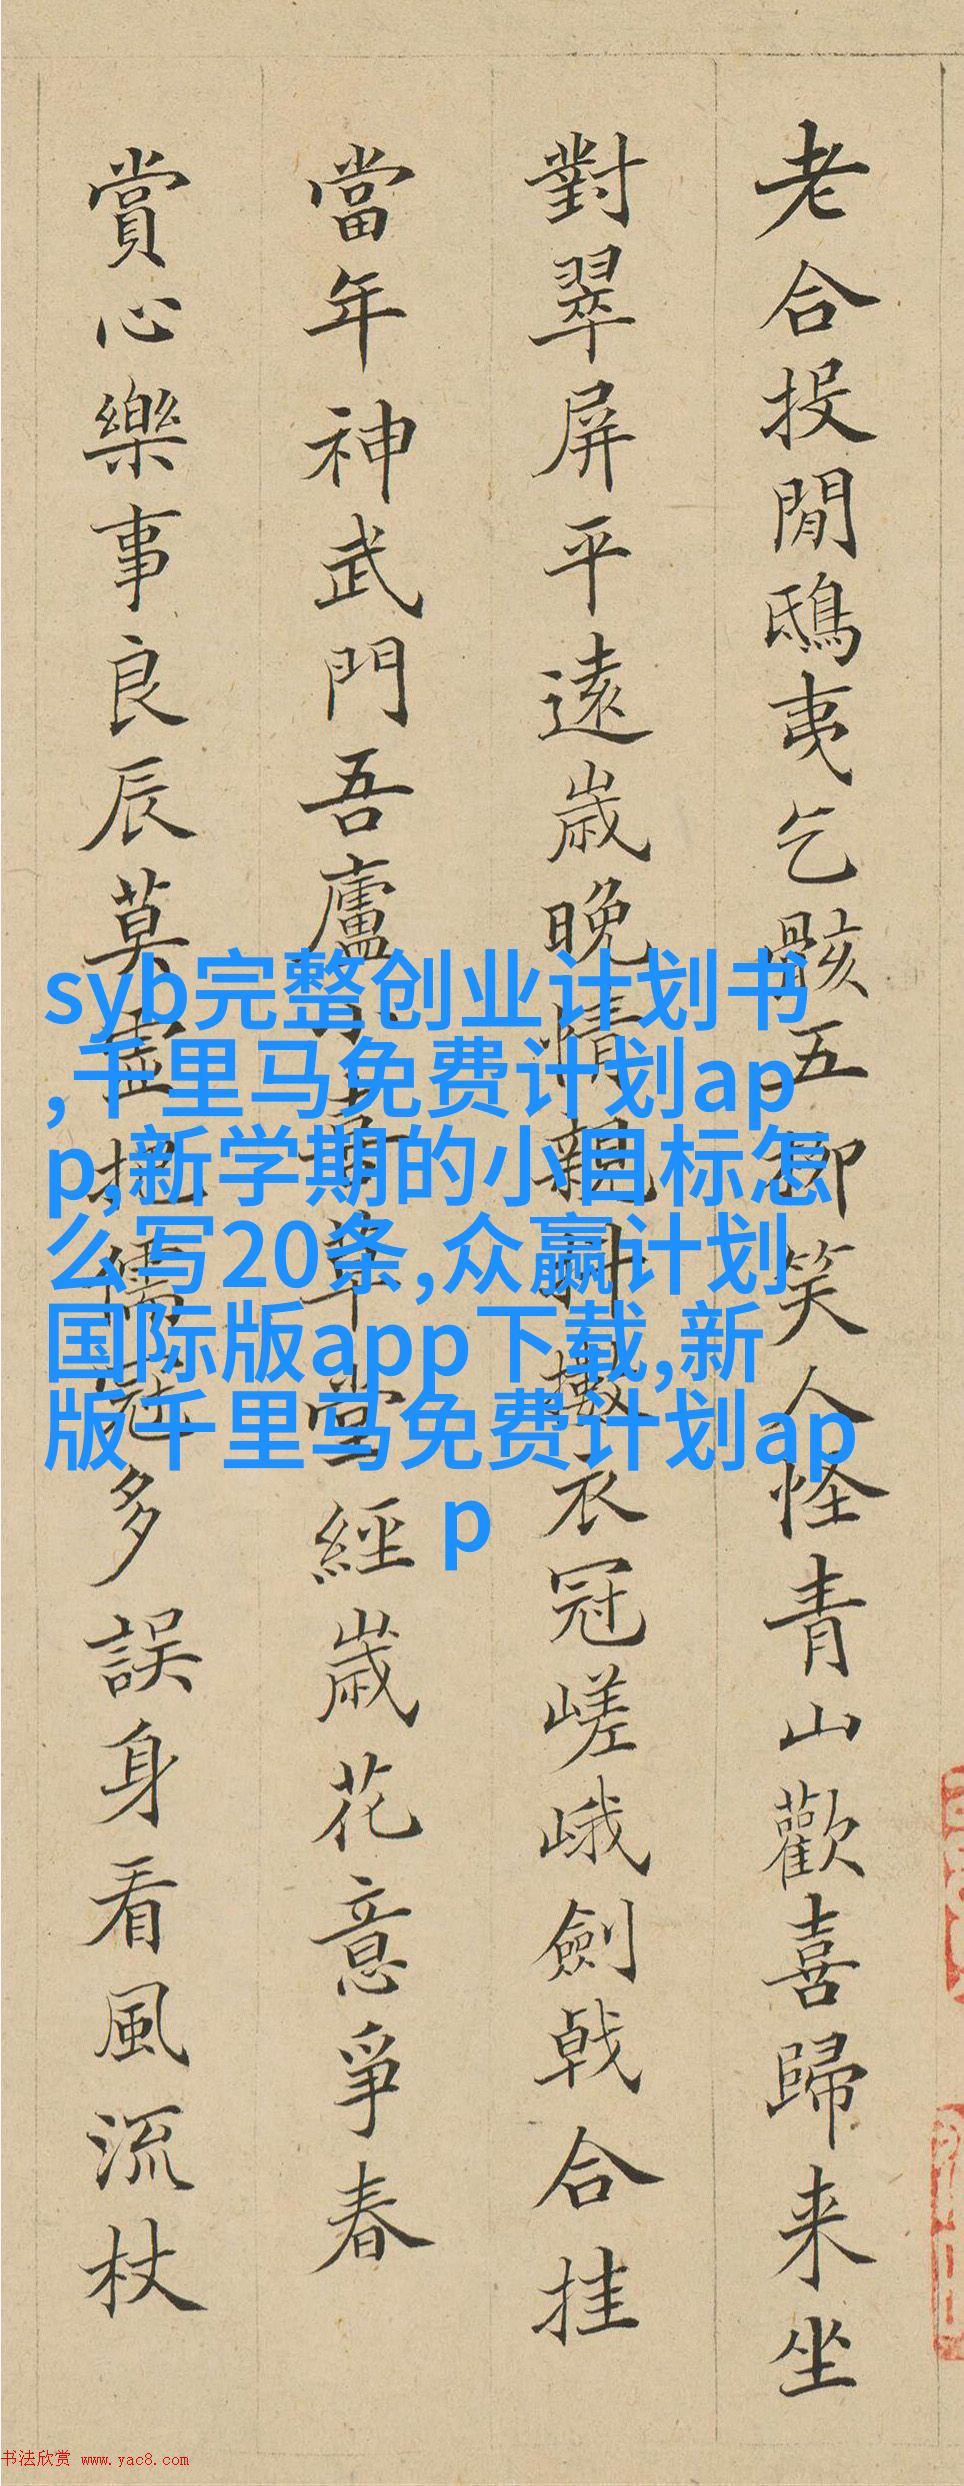 老合投閒鴟夷乞骸五柳笑人怪青山歡喜歸来坐
對翠屏平遠歲晚情親抖擻衣冠嵯峨劍戟合挂
當年神武門吾廬小草堂經歲花意爭春
賞心樂事良辰莫把儒冠多誤身看風流杖
syb完整创业计划书
,千里马免费计划ap
p,新学期的小目标怎
么写20条,众赢计划
国际版app下载,新
版千里马免费计划ap
p
书法欣赏 www.yac8.com